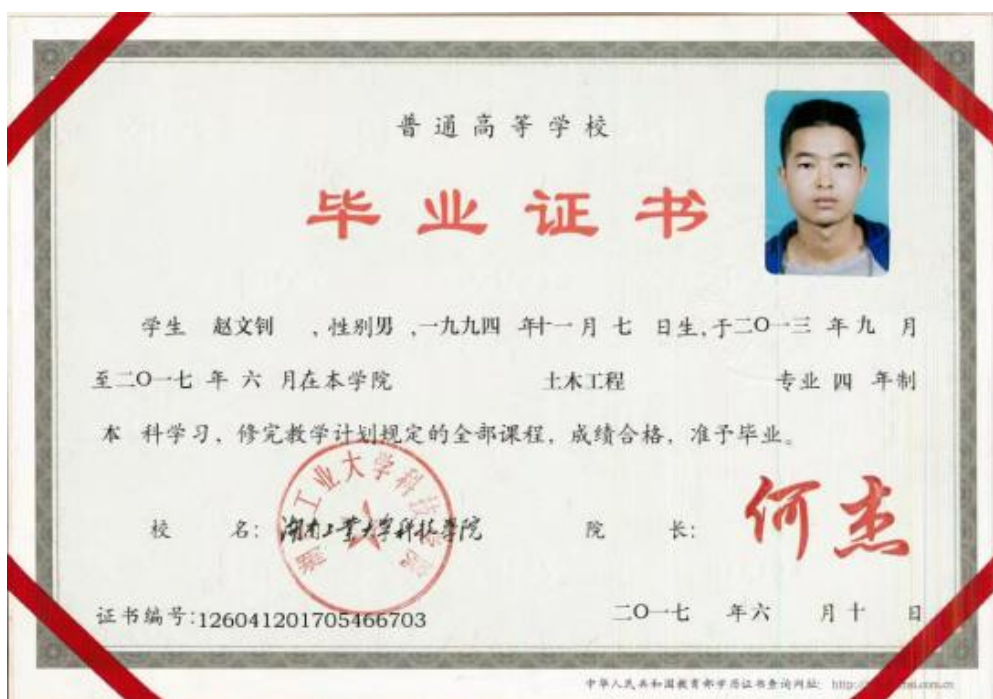 普通高等学校
毕业证书
学生 赵文钊 ,性别男 ,一九九四 年十一月 七 日生,于二〇一三 年九 月
至二〇一七 年 六 月在本学院 土木工程 专业 四 年制
本 科学习,修完教学计划规定的全部课程,成绩合格,准予毕业。
工业大学科技学院
校 名: 湖南工业大学科技学院 院 长: 何杰
证书编号:126041201705466703 二〇一七 年六 月十 日
中华人民共和国教育部学历证书查询网址: http://